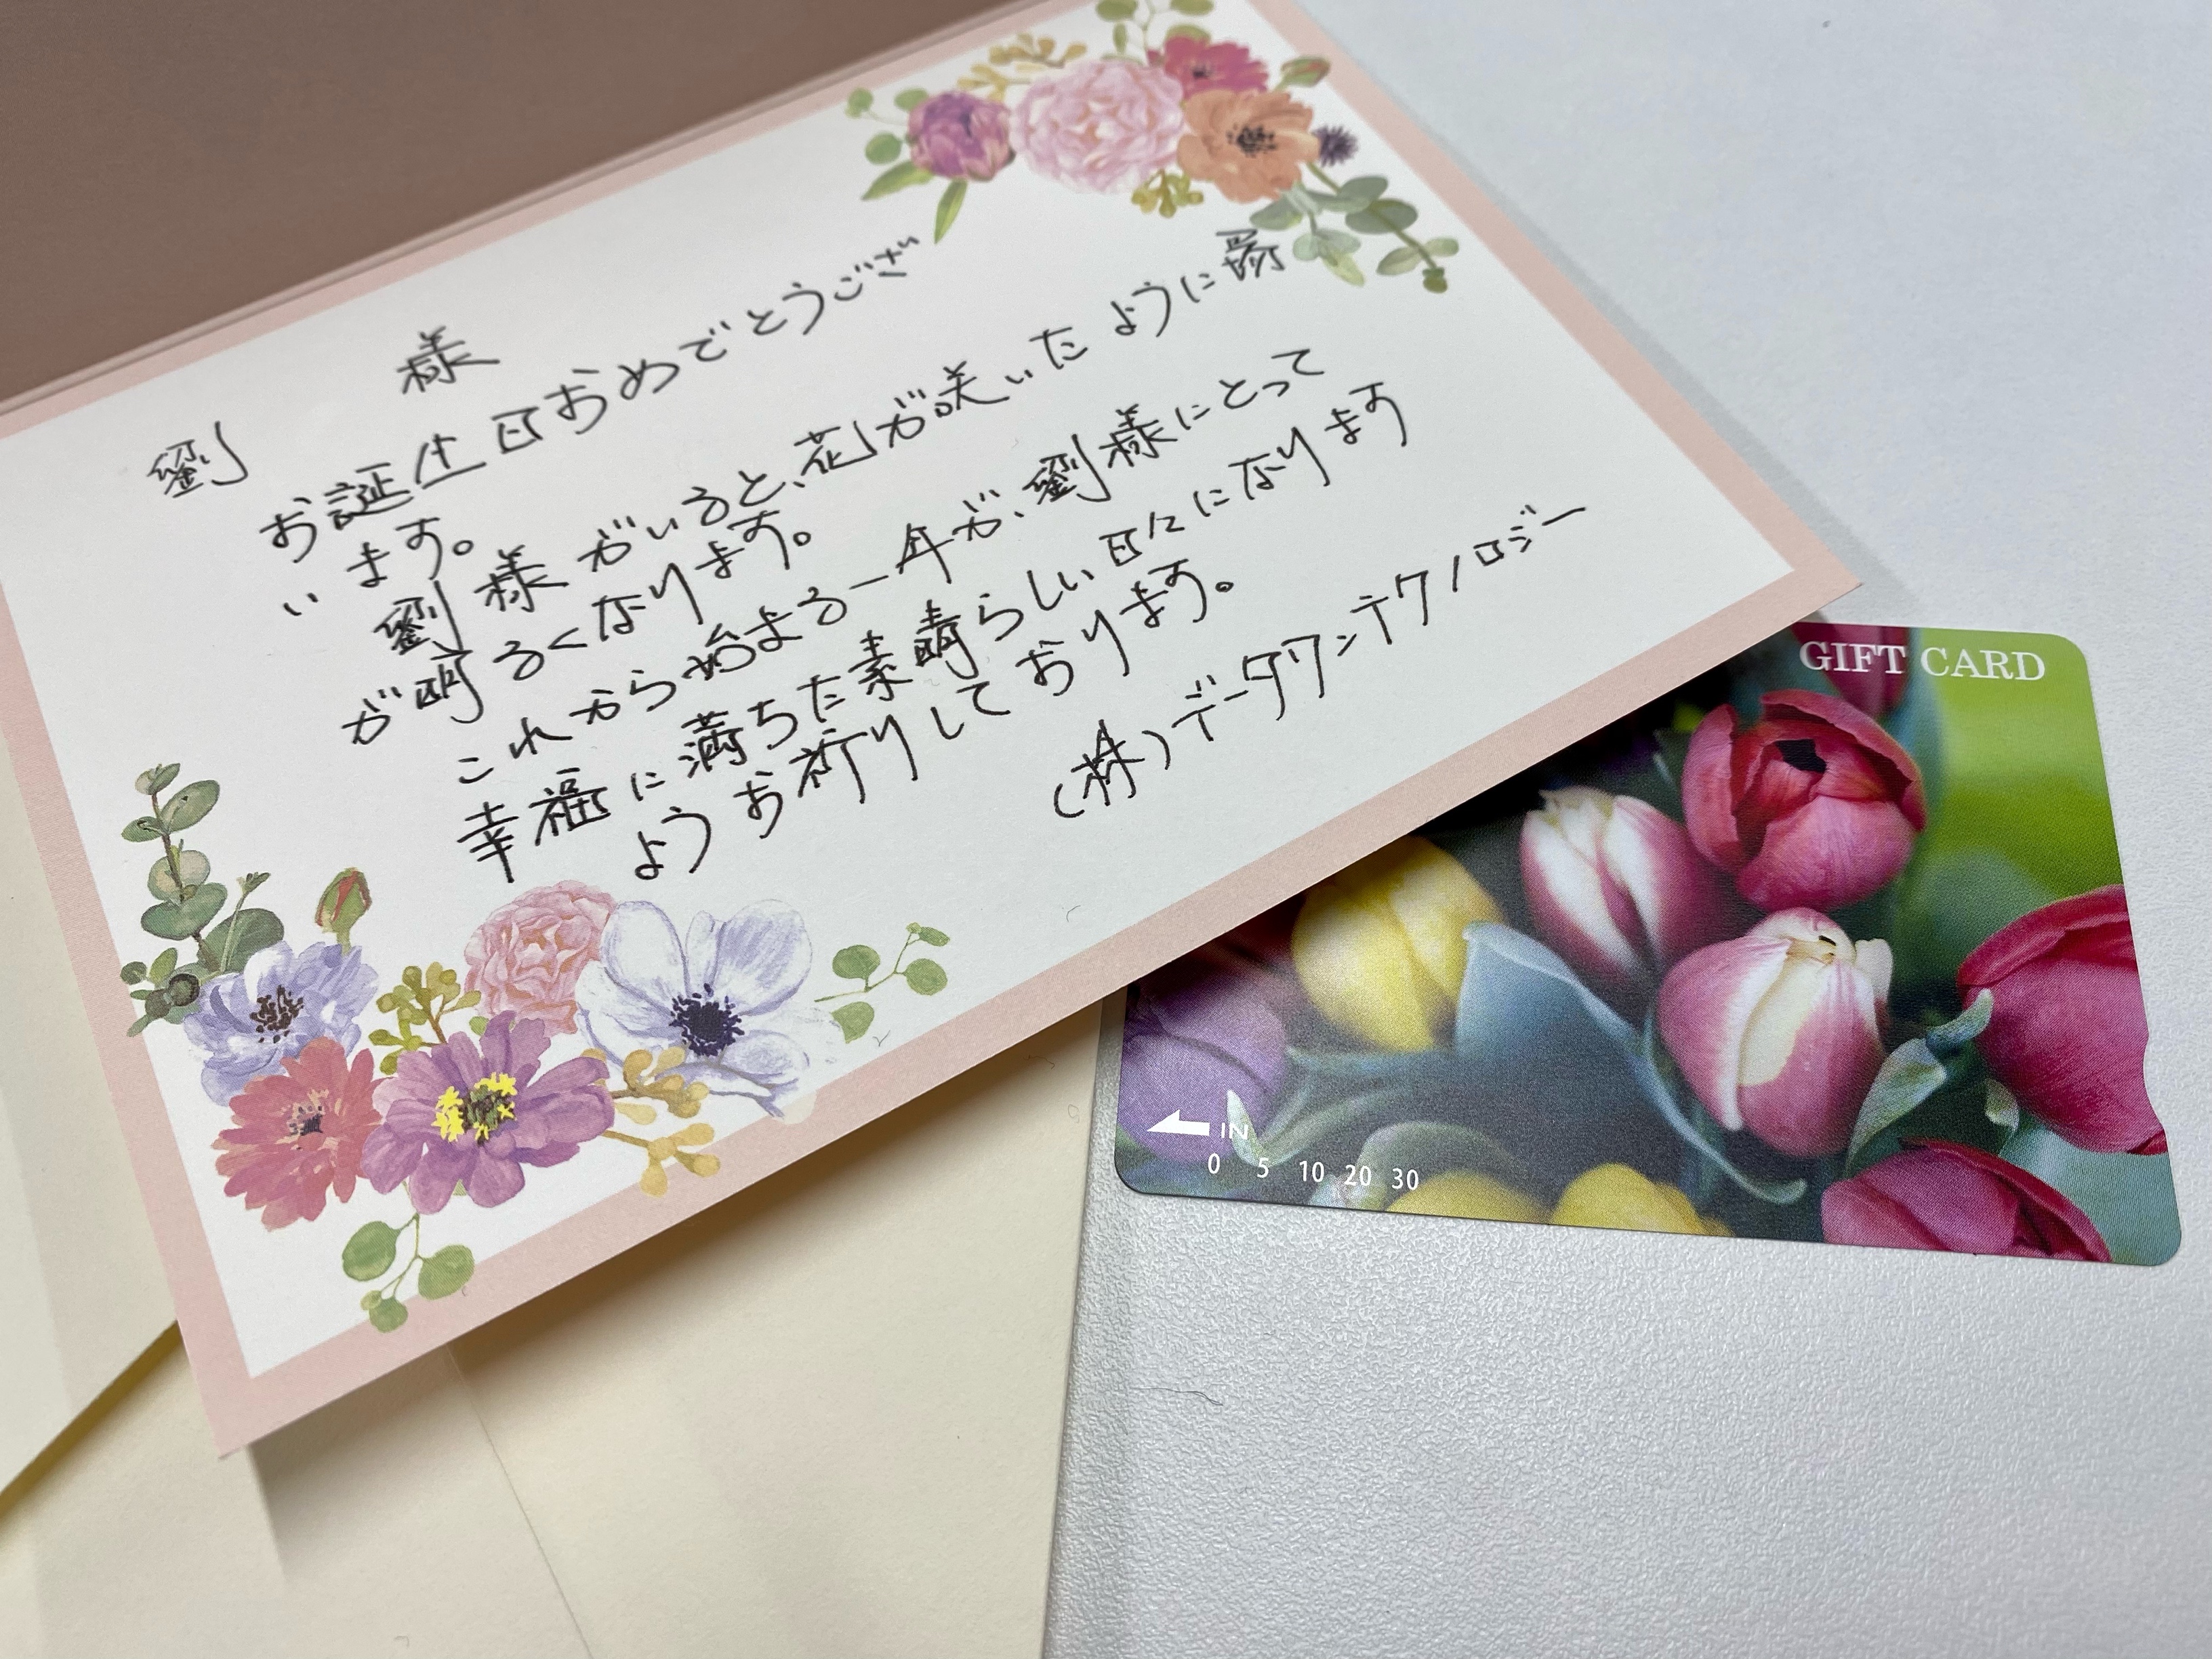 劉 様
お誕生日おめでとうござ
います。
劉様がいると、花が咲いたように場
が明るくなります。
これから始まる一年が、劉様にとって
幸福に満ちた素晴らしい日々になります
ようお祈りしております。
(株)データワンテクノロジー
GIFT CARD
IN
0 5 10 20 30